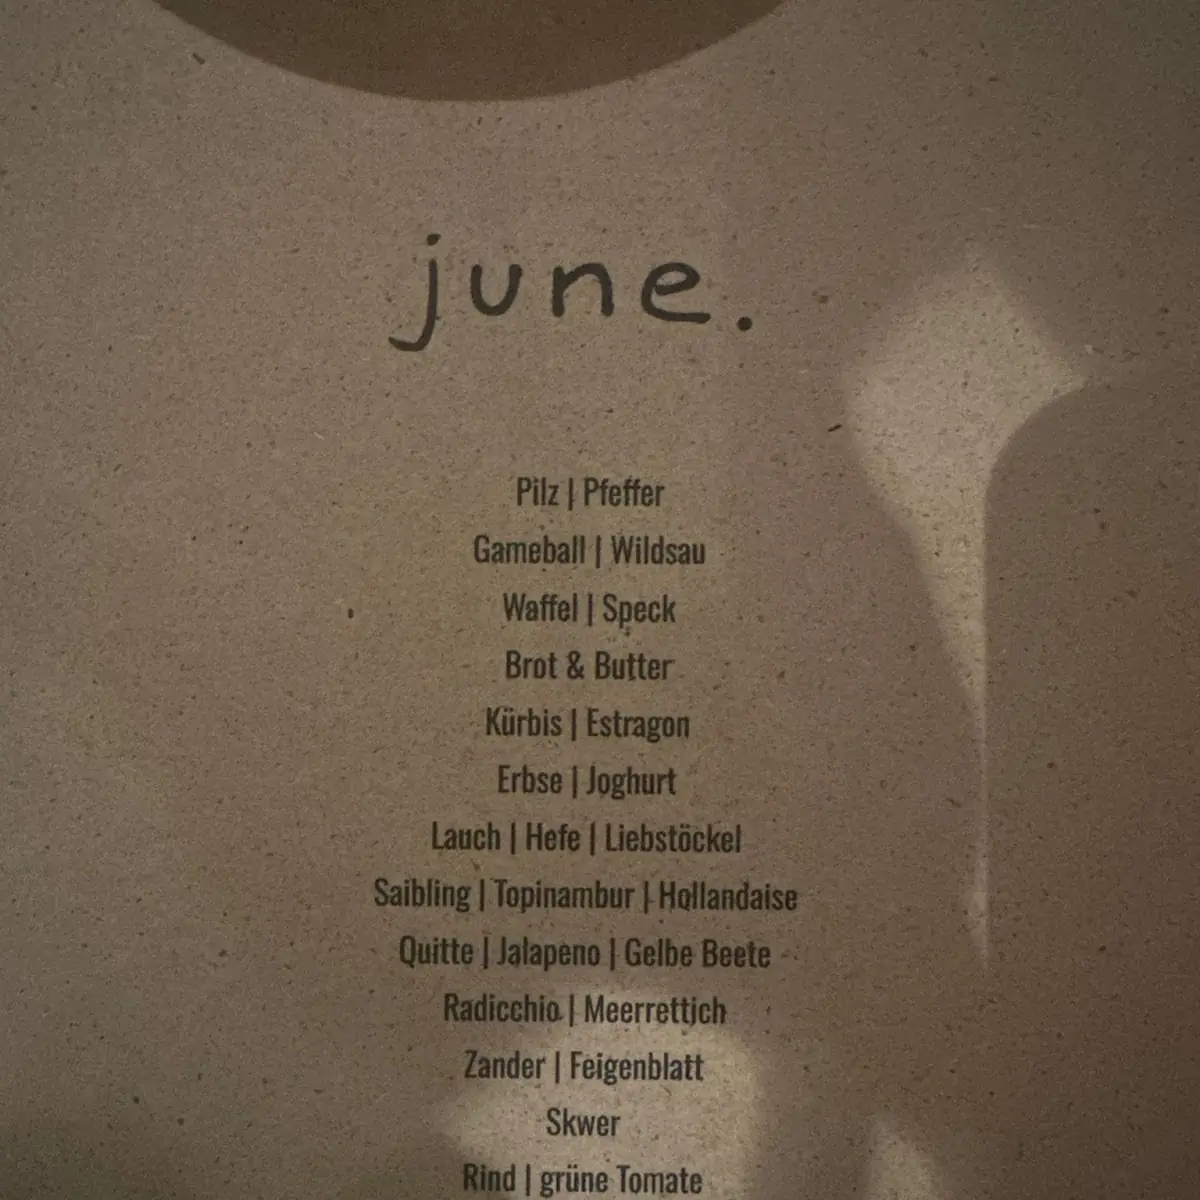 june.
Pilz | Pfeffer
Gameball | Wildsau
Waffel | Speck
Brot & Butter
Kürbis | Estragon
Erbse | Joghurt
Lauch | Hefe | Liebstöckel
Saibling | Topinambur | Hollandaise
Quitte | Jalapeno | Gelbe Beete
Radicchio | Meerrettich
Zander | Feigenblatt
Skwer
Rind | grüne Tomate